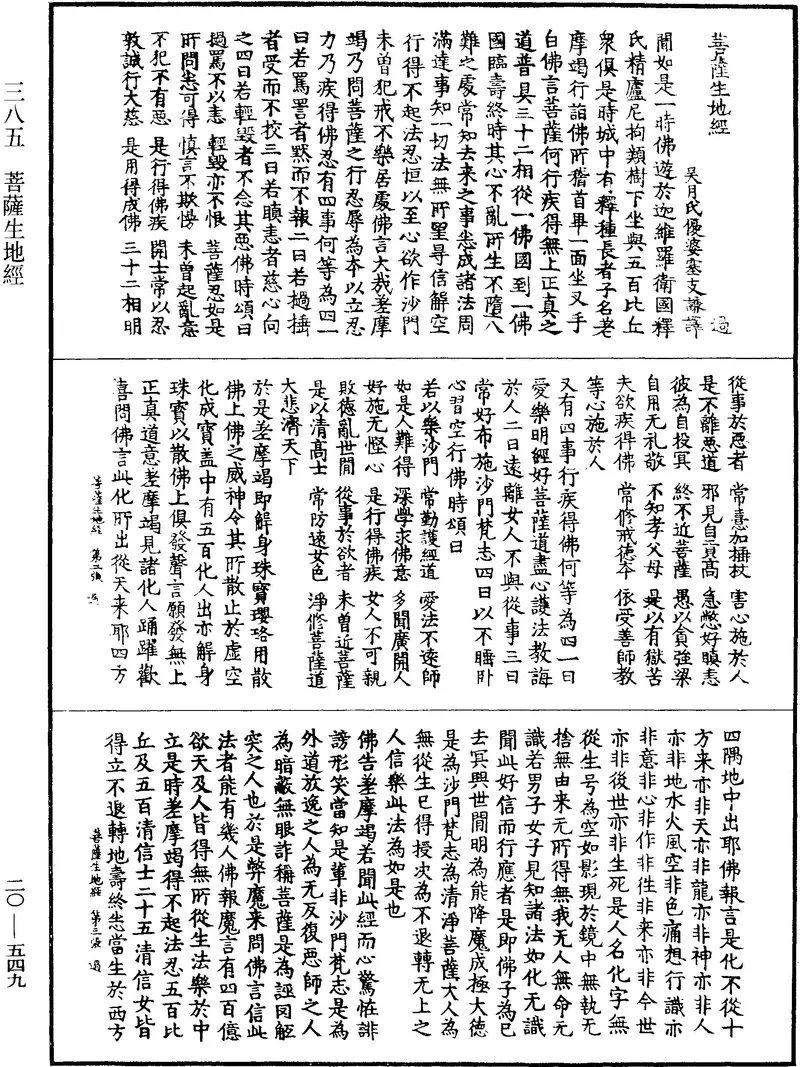 三八五　菩薩生地經
二〇—五四九
菩薩生地經
吳月氏優婆塞支謙譯　過
聞如是一時佛遊於迦維羅衛國釋
氏精廬尼拘類樹下坐與五百比丘
衆俱是時城中有釋種長者子名差
摩竭行詣佛所稽首畢一面坐叉手
白佛言菩薩何行疾得無上正真之
道普具三十二相從一佛國到一佛
國臨壽終時其心不亂所生不墮八
難之處常知去來之事悉成諸法周
滿達事知一切法無所罣导信解空
行得不起法忍恒以至心欲作沙門
未曾犯戒不樂居處佛言大哉差摩
竭乃問菩薩之行忍辱為本以立忍
力乃疾得佛忍有四事何等為四一
曰若罵詈者默而不報二曰若撾捶
者受而不挍三曰若瞋恚者慈心向
之四曰若輕毀者不念其惡佛時頌曰
撾罵不以恚　輕毀亦不恨　菩薩忍如是
所問悉可得　慎言不欺慢　未曾起亂意
不犯不有惡　是行得佛疾　開士常以忍
敦誠行大慈　是用得成佛　三十二相明
從事於惡者　常憙加捶杖　害心施於人
是不離惡道　邪見自貢高　急憋好瞋恚
彼為自投冥　終不近菩薩　愚以貪強梁
自用无礼敬　不知孝父母　是以有獄苦
夫欲疾得佛　常修戒德本　依受善師教
等心施於人
又有四事行疾得佛何等為四一曰
愛樂明經好菩薩道盡心護法教誨
於人二曰遠離女人不與從事三曰
常好布施沙門梵志四曰以不睡卧
心習空行佛時頌曰
若以樂沙門　常勤護經道　愛法不遠師
如是人難得　深學求佛意　多聞廣開人
好施无慳心　是行得佛疾　女人不可親
敗德亂世間　從事於欲者　未曾近菩薩
是以清高士　常防遠女色　淨修菩薩道
大悲濟天下
於是差摩竭即解身珠寶瓔珞用散
佛上佛之威神令其所散止於虛空
化成寶盖中有五百化人出亦解身
珠寶以散佛上俱發聲言願發無上
正真道意差摩竭見諸化人踊躍歡
喜問佛言此化所出從天来耶四方
菩薩生地經　第二張　過
四隅地中出耶佛報言是化不從十
方来亦非天亦非龍亦非神亦非人
亦非地水火風空非色痛想行識亦
非意非心非作非往非来亦非今世
亦非後世亦非生死是人名化字無
從生号為空如影現於鏡中無執无
捨無由来无所得無我无人無命元
識若男子女子見知諸法如化无識
聞此好信而行應者是即佛子為已
去冥與世間明為能降魔成極大德
是為沙門梵志為清淨菩薩大人為
無從生已得授次為不退轉无上之
人信樂此法為如是也
佛告差摩竭若聞此經而心驚恠誹
謗形笑當知是輩非沙門梵志是為
外道放逸之人為无反復惡師之人
為暗蔽無眼詐稱菩薩是為誣罔觝
突之人也於是弊魔来問佛言信此
法者能有幾人佛報魔言有四百億
欲天及人皆得無所從生法樂於中
立是時差摩竭得不起法忍五百比
丘及五百清信士二十五清信女皆
得立不退轉地壽終悉當生於西方
菩薩生地經　第三張　過